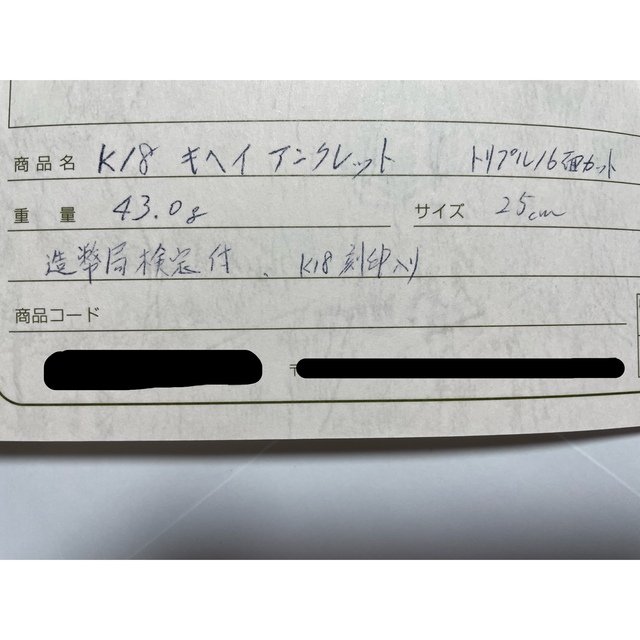 商品名 K18 キヘイ アンクレット トリプル16面カット
重量 43.0g サイズ 25cm
造幣局検定付、K18刻印入り
商品コード
〒